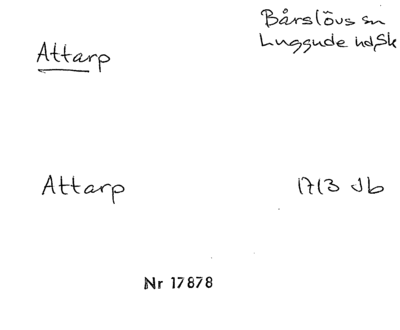 Bårslövs sn
Luggude hd, Sk
Attarp
Attarp 1713 Jb
Nr 17878